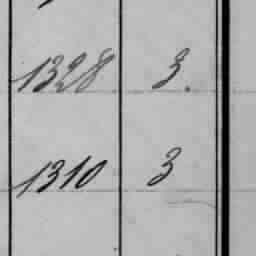 1328 3.
1310 3